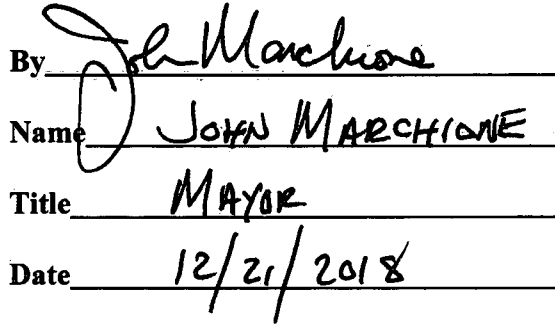 By John Marchione
Name JOHN MARCHIONE
Title MAYOR
Date 12/21/2018